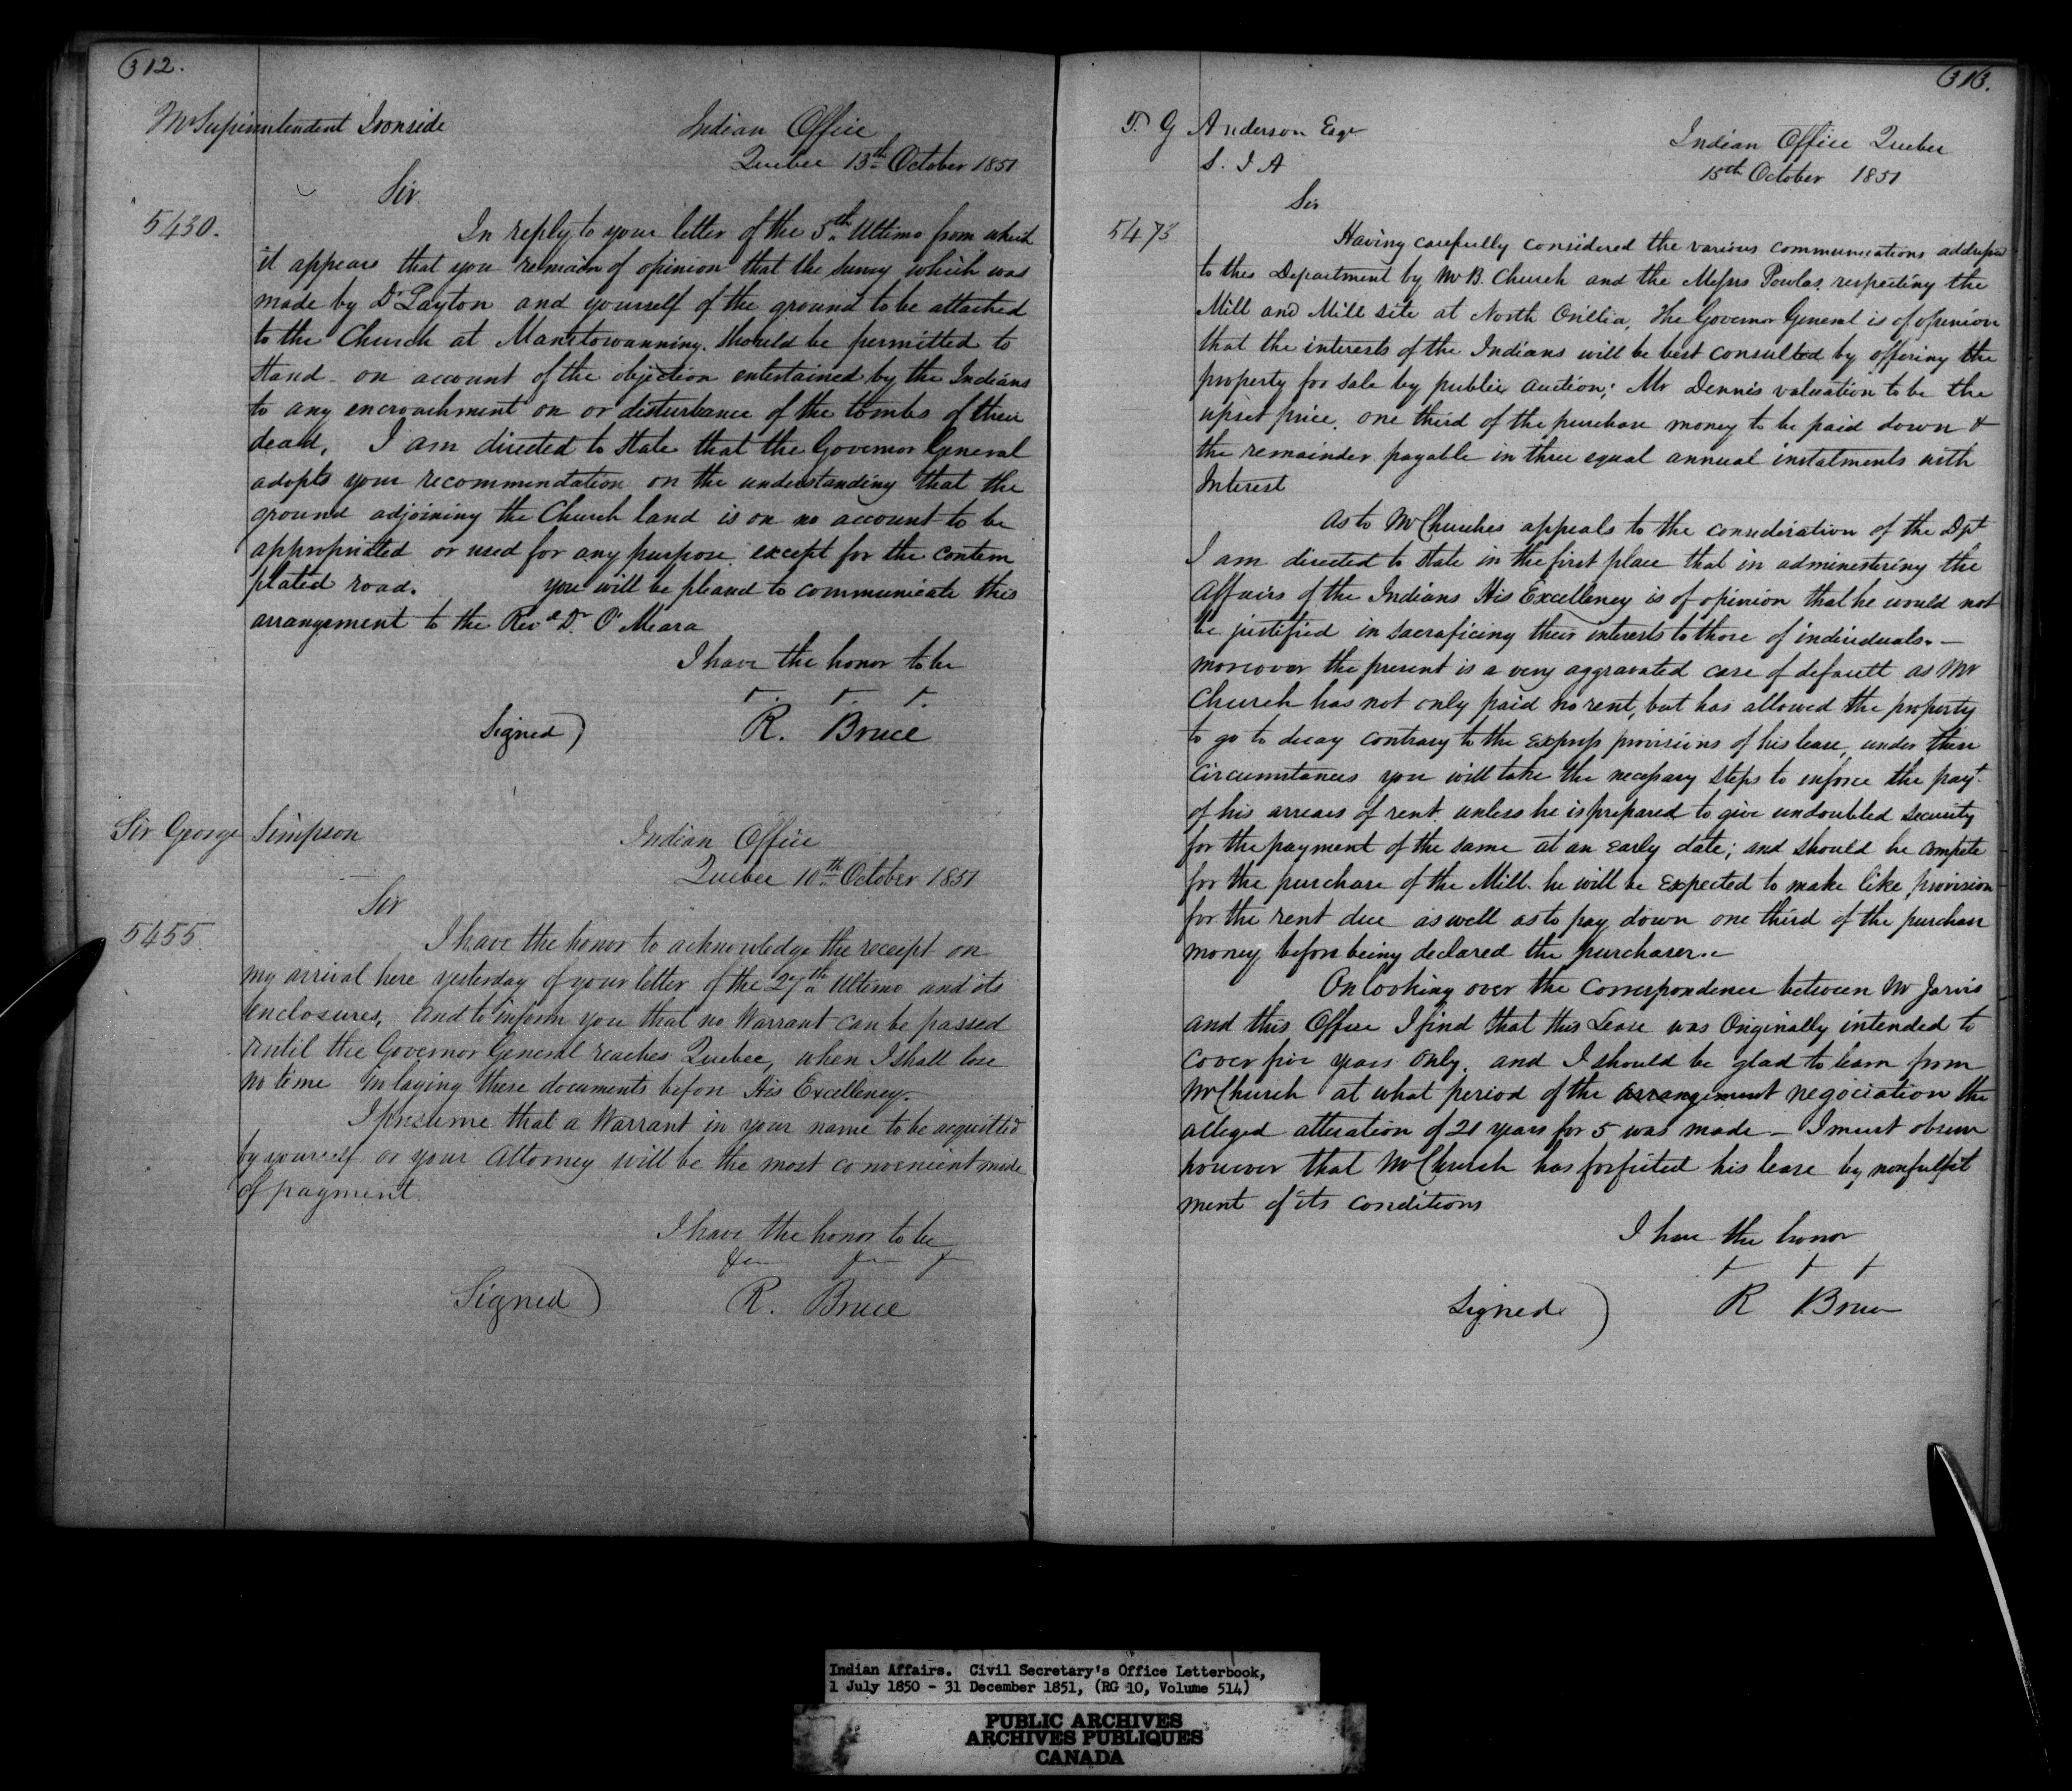 312.
Mr Superintendent Ironside
Indian Office
Quebec 13th October 1851
Sir
5430.
In reply to your letter of the 5th Ultimo from which
it appears that you remain of opinion that the survey which was
made by Dr Layton and yourself of the ground to be attached
to the Church at Manitowanning. should be permitted to
stand - on account of the objection entertained by the Indians
to any encroachment on or disturbance of the tombs of their
dead, I am directed to state that the Governor General
adopts your recommendation on the understanding that the
ground adjoining the Church land is on no account to be
appropriated or used for any purpose except for the contem
plated road. you will be pleased to communicate this
arrangement to the Revd Dr O'Meara
I have the honor to be
Signed) R. Bruce
Sir George Simpson
Indian Office
Quebec 10th October 1851
Sir
5455.
I have the honor to acknowledge the receipt on
my arrival here yesterday of your letter of the 27th Ultimo and its
enclosures, and to inform you that no Warrant can be passed
until the Governor General reaches Quebec, when I shall lose
no time in laying these documents before His Excellency.
I presume that a Warrant in your name to be acquitted
by yourself or your Attorney will be the most convenient mode
of payment.
I have the honor to be
Signed) R. Bruce
313.
T. G Anderson Esqr
S. I A
Indian Office Quebec
15th October 1851
Sir
5473
Having carefully considered the various communications addressed
to this Department by Mr B. Church and the Messrs Powlas, respecting the
Mill and Mill site at North Orillia, The Governor General is of opinion
that the interests of the Indians will be best consulted by offering the
property for sale by public auction; Mr Dennis valuation to be the
upset price, one third of the purchase money to be paid down &
the remainder payable in three equal annual instalments with
Interest
As to Mr Churches appeals to the consideration of the Dpt
I am directed to state in the first place that in administering the
Affairs of the Indians His Excellency is of opinion that he would not
be justified in sacraficing their interests to those of individuals. -
moreover the present is a very aggravated case of default as Mr
Church has not only paid no rent, but has allowed the property
to go to decay contrary to the express provisions of his lease, under these
circumstances you will take the necessary steps to enforce the payt
of his arrears of rent unless he is prepared to give undoubted security
for the payment of the same at an early date; and should he compete
for the purchase of the Mill. he will be expected to make like provision
for the rent due as well as to pay down one third of the purchase
money before being declared the purchaser. -
On looking over the Correspondence between Mr Jarvis
and this Office I find that this Lease was Originally intended to
cover five years only, and I should be glad to learn from
Mr Church at what period of the arrangement negociation the
alleged alteration of 21 years for 5 was made - I must observe
however that Mr Church has forfeited his lease by nonfulfil
ment of its conditions
I have the honor
Signed) R Bruce
Indian Affairs. Civil Secretary's Office Letterbook,
1 July 1850 - 31 December 1851, (RG 10, Volume 514)
PUBLIC ARCHIVES
ARCHIVES PUBLIQUES
CANADA